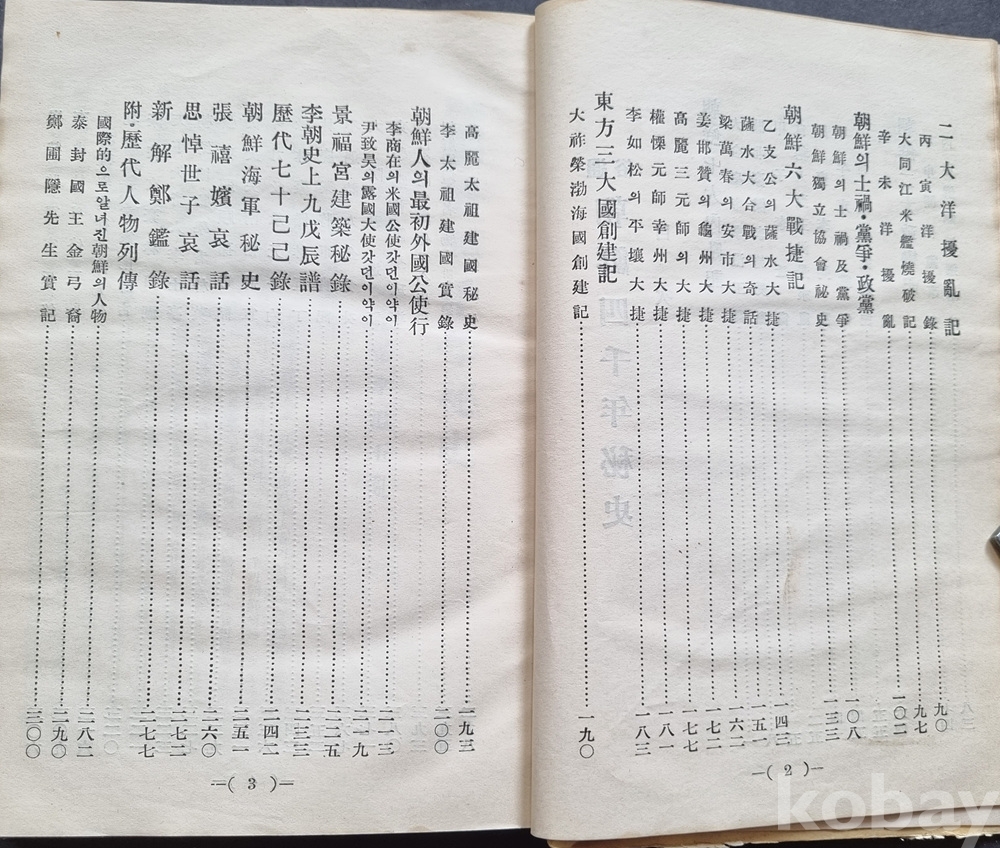 二大洋擾亂記
丙寅洋擾錄 九〇
大同江米艦燒破記 九七
辛未洋擾亂 一〇二
朝鮮의士禍·黨爭·政黨
朝鮮의士禍及黨爭 一〇八
朝鮮獨立協會祕史 一三三
朝鮮六大戰捷記
乙支公의薩水大捷 一四三
薩水大合戰의奇話 一五一
梁萬春의安市大捷 一六二
姜邯贊의龜州大捷 一七二
高麗三元師의大捷 一七七
權慄元師幸州大捷 一八一
李如松의平壤大捷 一八三
東方三大國創建記
大祚榮渤海國創建記 一九〇
—( 2 )—
高麗太祖建國秘史 一九三
李太祖建國實錄 二〇〇
朝鮮人의最初外國公使行
李商在의米國公使갓던이약이 二一三
尹致昊의露國大使갓던이약이 二一九
景福宮建築秘錄 二二五
李朝史上九戊辰譜 二三三
歷代七十己己錄 二四二
朝鮮海軍秘史 二五一
張禧嬪哀話 二六〇
思悼世子哀話 二七二
新解鄭鑑錄 二七七
附·歷代人物列傳
國際的으로알녀진朝鮮의人物 二八二
泰封國王金弓裔 二九〇
鄭圃隱先生實記 三〇〇
—( 3 )—
kobay